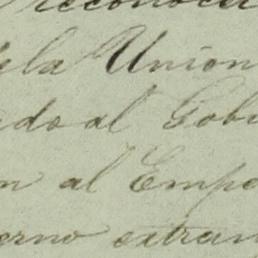 reconocer
de la Union
ndo al Gobi
n al Empe
erno extran